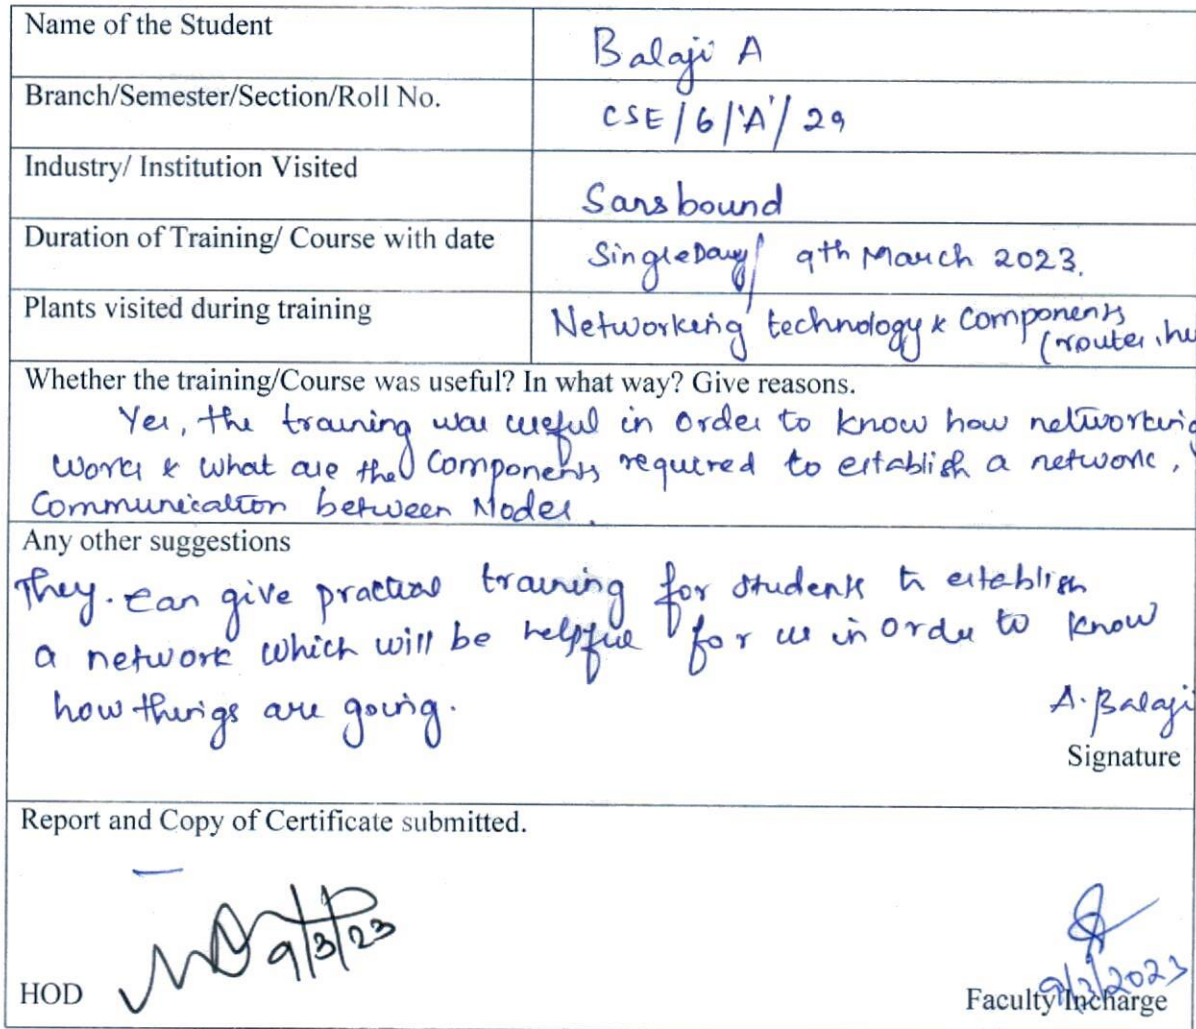 Name of the Student
Balaji A
Branch/Semester/Section/Roll No.
CSE/6/'A'/29
Industry/ Institution Visited
Sansbound
Duration of Training/ Course with date
Single Day/ 9th March 2023.
Plants visited during training
Networking technology & Components
(router, hu
Whether the training/Course was useful? In what way? Give reasons.
Yes, the training was useful in order to know how networking
works & what are the Components required to establish a network,
Communication between Nodes.
Any other suggestions
They. can give practical training for students to establish
a network which will be helpful for us in order to know
how things are going.
A. Balaji
Signature
Report and Copy of Certificate submitted.
9/3/23
HOD
9/3/2023
Faculty Incharge